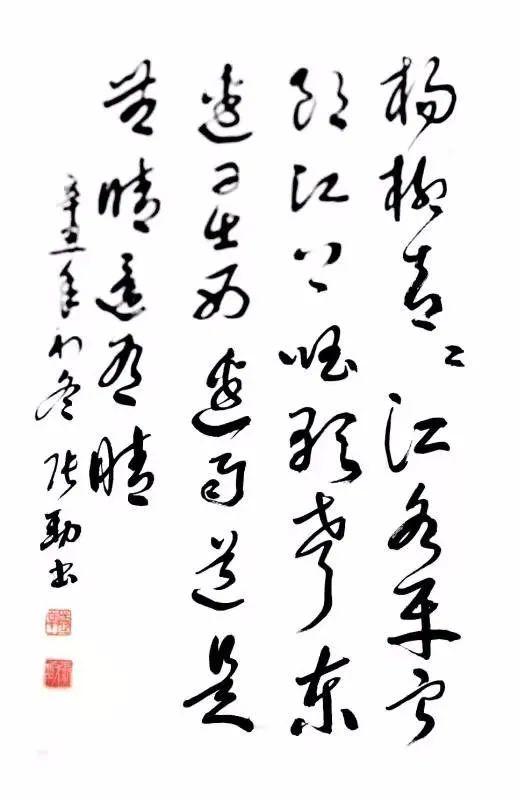 杨柳青々江水平闻
郎江上唱歌声东
边日出西边雨道是
无晴还有晴
辛丑年初冬张勤书